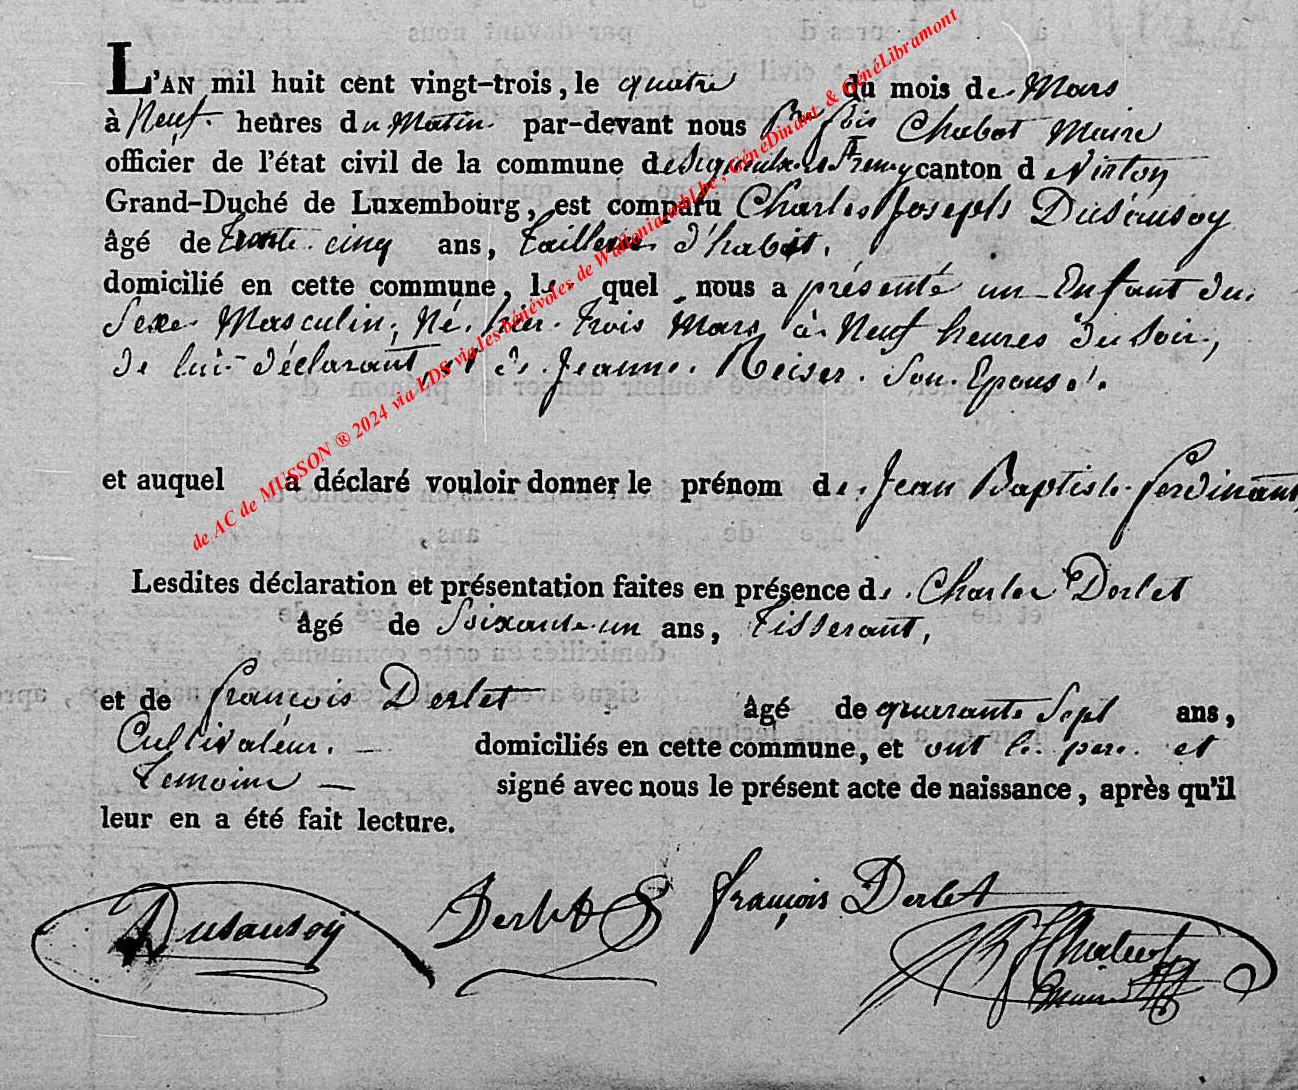 L'AN mil huit cent vingt-trois, le quatre du mois de Mars
à Neuf heures du Matin par-devant nous Chabot Maire
officier de l'état civil de la commune de canton d Virton
Grand-Duché de Luxembourg, est comparu Charles Joseph Dusausoy
âgé de trente cinq ans, tailleur d'habit.
domicilié en cette commune, le quel nous a présenté un Enfant du
Sexe Masculin, Né hier trois Mars à Neuf heures du Soir,
de lui déclarant, et de Jeanne Reiser Son Epouse.
et auquel a déclaré vouloir donner le prénom de Jean Baptiste ferdinant,
Lesdites déclaration et présentation faites en présence de Charles Derlet
âgé de Soixante un ans, Tisserant,
et de françois Derlet âgé de quarante Sept ans,
Cultivateur. domiciliés en cette commune, et ont le pere et
Temoins signé avec nous le présent acte de naissance, après qu'il
leur en a été fait lecture.
Dusausoy Derlet françois Derlet Chabot
maire
de AC de MUSSON ® 2024 via LDS via les bénévoles de Wallonia asbl.be, GénéDinant & GénéLibramont